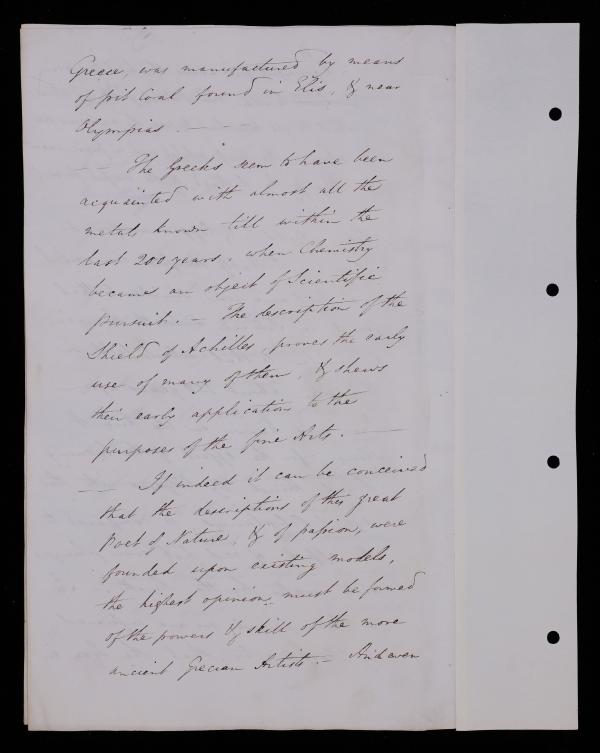 Greece, was manufactured by means
of pit Coal found in Elis, & near
Olympias. — —
— — The Greeks seem to have been
acquainted with almost all the
metals known till within the
last 200 years, when Chemistry
became an object of Scientific
pursuit. — The description of the
Shield of Achilles, proves the early
use of many of them, & shews
their early application to the
purposes of the fine Arts. —
— If indeed it can be conceived
that the descriptions of this great
Poet of Nature, & of passion, were
founded upon existing models,
the highest opinion must be formed
of the powers & skill of the more
ancient Grecian Artists. — And even